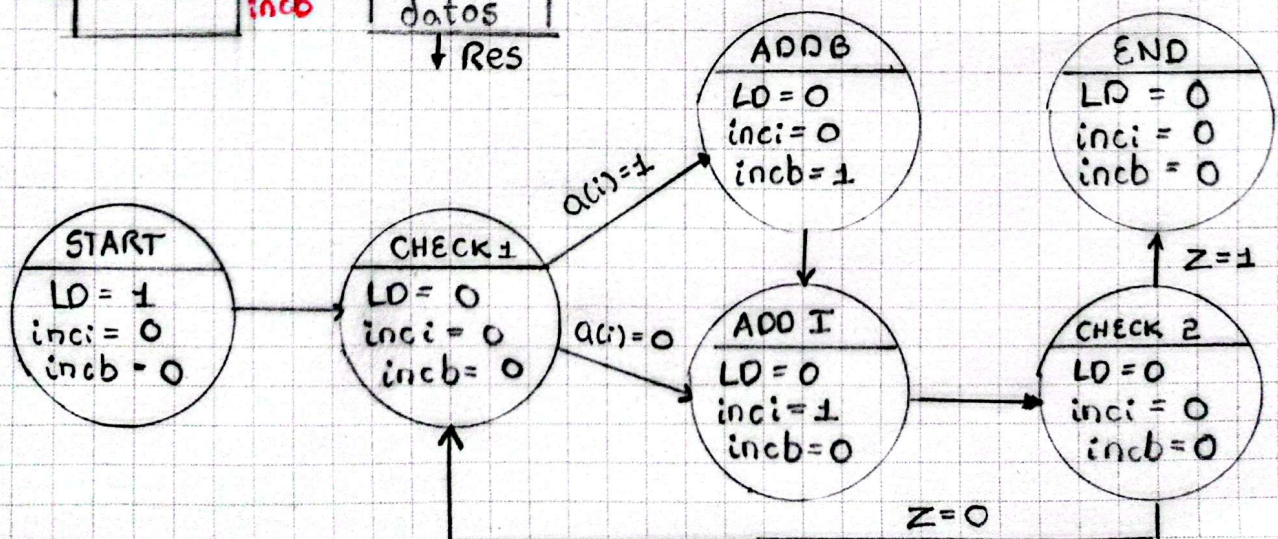 incb
datos
Res
ADDB
LD = 0
inci = 0
incb = 1
END
LD = 0
inci = 0
incb = 0
START
LD = 1
inci = 0
incb = 0
CHECK 1
LD = 0
inci = 0
incb = 0
a(i)=1
a(i)=0
ADD I
LD = 0
inci = 1
incb = 0
CHECK 2
LD = 0
inci = 0
incb = 0
Z=1
Z=0